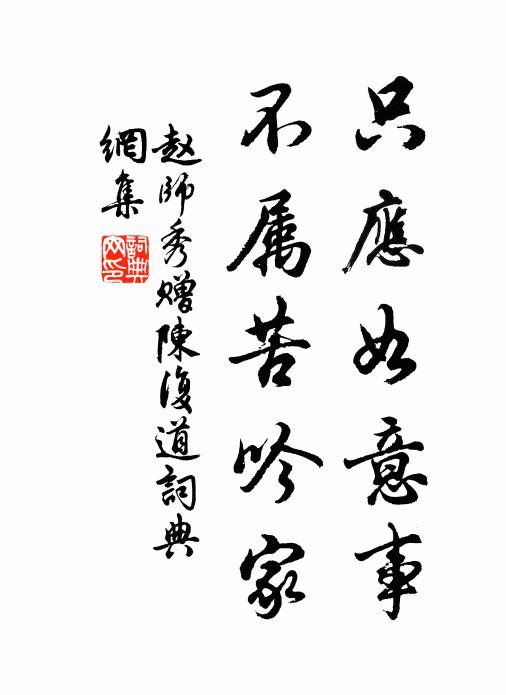 只應如意事
不属苦吟家
赵師秀赠陳復道詞典
網集
詞典网印